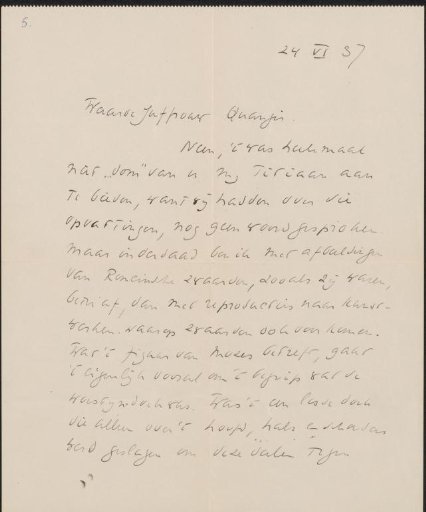 5.
24 VI 37
Waarde Juffrouw
Neen, 't was heelemaal
niet „dom" van u mij Titiaan aan
te bieden, want wij hadden over die
opvattingen, nog geen woord gesproken
maar inderdaad ben ik met afbeeldingen
van Romeinsche zwaarden, zooals zij waren,
beter af, dan met reproducties naar kunst-
werken waarop zwaarden ook voorkomen.
Wat 't figuur van Mozes betreft, gaat
't eigenlijk vooral om 't begrip wat de
was. Was 't een losse doek
die alleen over 't hoofd, hals en schouders
werd geslagen om deze deelen tegen